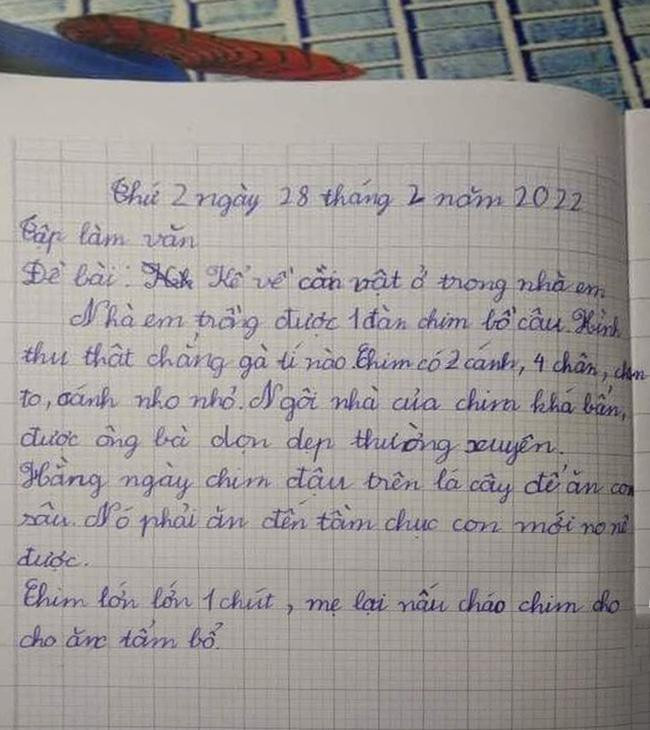 Thứ 2 ngày 28 tháng 2 năm 2022
Tập làm văn
Đề bài: Kể về cần vật ở trong nhà em
Nhà em trồng được 1 đàn chim bồ câu. Hình
thu thật chẳng gà tí nào. Chim có 2 cánh, 4 chân, chân
to, cánh nho nhỏ. Ngôi nhà của chim khá bẩn,
được ông bà dọn dẹp thường xuyên.
Hằng ngày chim đậu trên lá cây để ăn con
sâu. Nó phải ăn đến tầm chục con mới no nê
được.
Chim lớn lớn 1 chút, mẹ lại nấu cháo chim cho
cho ăn tẩm bổ.